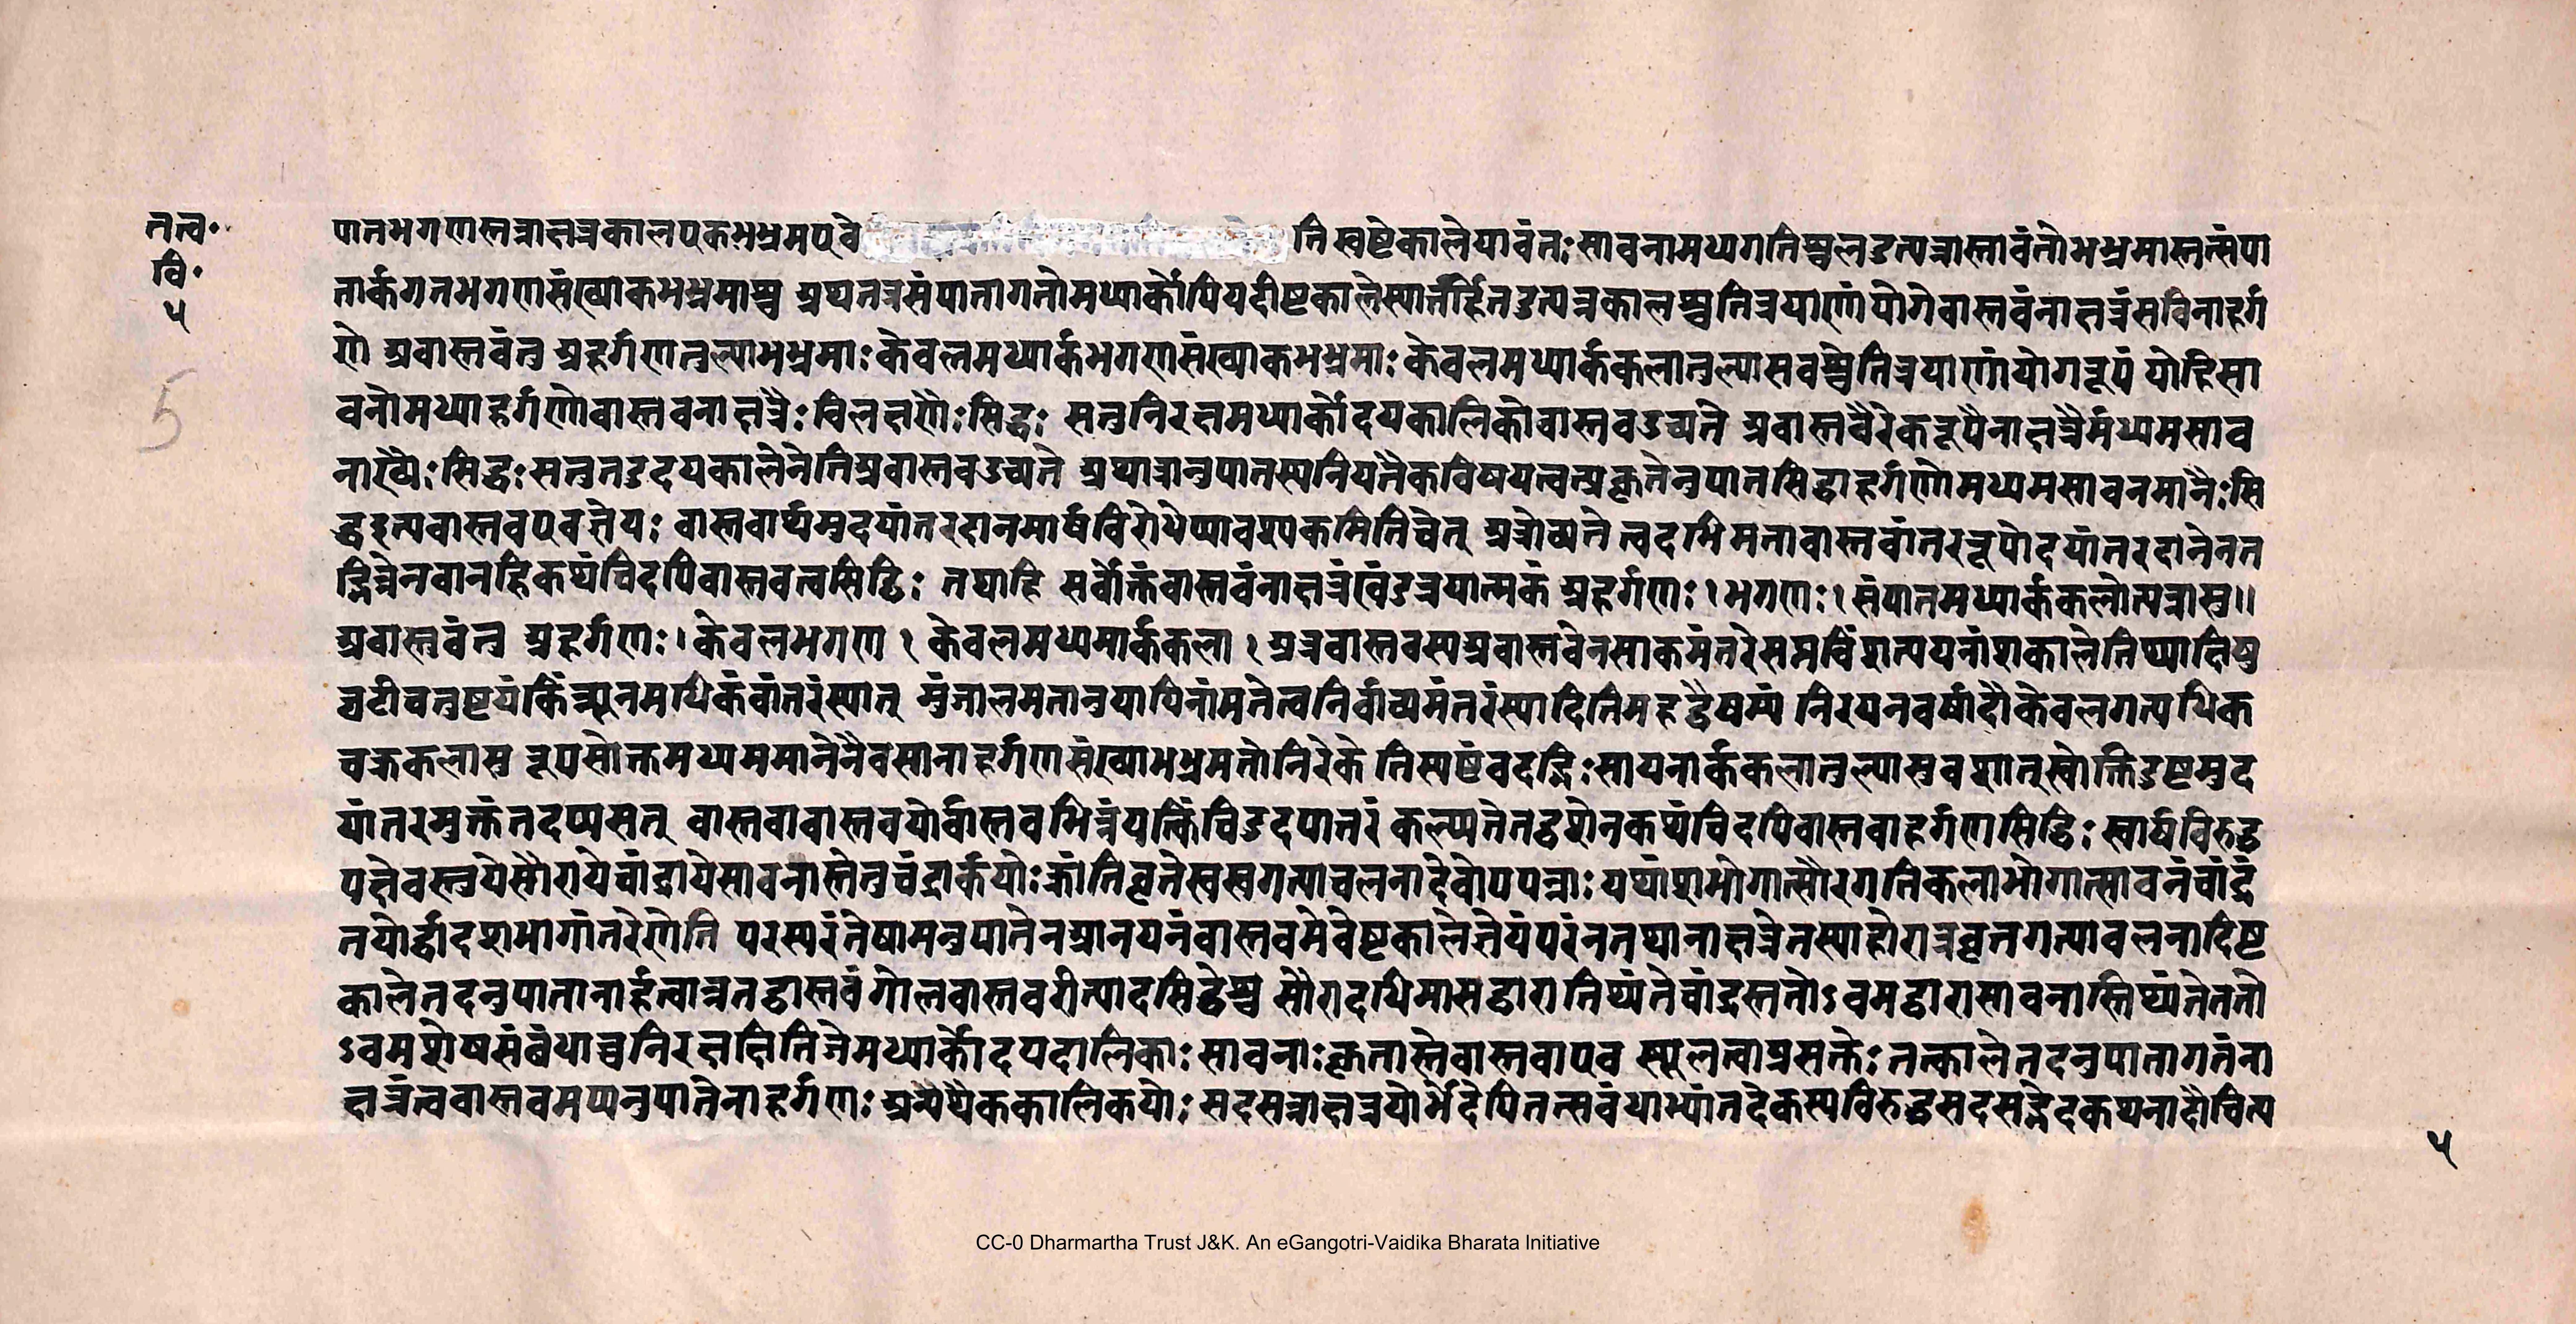 तत्व॰
वि॰
५
5
पातभगणास्तन्नाक्षत्रकालएकभभ्रमएवे
ति स्वष्टेकालेयावंतः सावनामध्यगतिश्चलउत्पन्नास्तावंतोभभ्रमास्तत्संपा
तार्कगतभगणसंख्याकभभ्रमाश्च अथतत्रसंपातागतोमध्यार्कोपियदीष्टकालेस्यात्तर्हितदुत्पन्नकालश्चतित्रयाणांयोगेवास्तवंनाक्षत्रंसविनाहर्ग
णो अवास्तवंतु अहर्गणतुल्याभभ्रमाः केवलमध्यार्कभगणसंख्याकभभ्रमाः केवलमध्यार्ककलातुल्यासवश्चेतित्रयाणांयोगरूपं योहिसा
वनोमध्याहर्गणोवास्तवनाक्षत्रैः विलक्षणैः सिद्धः सतुनिरक्षमध्यार्कोदयकालिकोवास्तवउच्यते अवास्तवैरेकरूपैर्नाक्षत्रैर्मध्यमसाव
नाख्यैः सिद्धः सतुतदुदयकालेनेतिअवास्तवउच्यते अथात्रानुपातस्यनियतैकविषयत्वत्प्रकृतेनुपातसिद्धाहर्गणोमध्यमसावनमानैः सि
द्धइत्यवास्तवएवज्ञेयः वास्तवार्थमुदयांतरदानमार्षविरोधेप्यावश्यकमितिचेत् अत्रोच्यते त्वदभिमतावास्तवांतररूपोदयांतरदानेनत
द्भिन्नेनवानहिकथंचिदपिवास्तवत्वसिद्धिः तथाहि सर्वोक्तंवास्तवंनाक्षत्रंखंडत्रयात्मकं अहर्गणः । भगणः । संपातमध्यार्ककलोत्पन्नासु ॥
अवास्तवंतु अहर्गणः । केवलभगण । केवलमध्यमार्ककला । अत्रवास्तवस्यअवास्तवेनसाकमंतरेसप्तविंशत्ययनांशकालेतिथ्याक्षिषु
घटीचतुष्टयंकिंन्यूनमधिकंवांतरंस्यात् मुंजालमतानुयायिनांमतेत्वनिर्वाच्यमंतरंस्यादितिमहद्वैषम्यं निरयनवर्षादौकेवलगत्यधिक
चक्रकलासु रूपसोक्तमध्यममानेनैवसानाहर्गणसंख्याभभ्रमतोनिरेके तिस्पष्टंवदद्भिः सायनार्ककलातुल्यासुवशात्स्वोक्तिदुष्टमुद
यांतरमुक्तंतदप्यसत् वास्तवावास्तवयोर्वास्तवभिन्नंयत्किंचिदुदयातरं कल्प्यतेतद्वशेनकथंचिदपिवास्तवाहर्गणसिद्धिः स्वार्षविरुद्ध
पक्षेवस्तुयेसौरायेचांद्रायेसावनास्तेतुचंद्रार्कयोः क्रांतिवृत्तेस्वस्वगत्याचलनादेवोपपन्नाः यथांशभोगात्सौरगतिकलाभोगात्सावनंचांद्रं
तयोर्द्वादशभागांतरेणेति परस्परंतेषामनुपातेनआनयनंवास्तवमेवेष्टकालेज्ञेयंपरंनतथानाक्षत्रेतस्याहोरात्रवृत्तगत्यावलनादिष्ट
कालेतदनुपातानार्हत्वान्नतद्वास्तवंगोलवास्तवरीत्यादसिद्धेश्च सौरादधिमासद्वारातिथ्यंतेचांद्रस्ततोऽवमद्वारासावनास्तिथ्यंतेततो
ऽवमशेषसंबंधाच्चनिरक्षक्षितिजेमध्यार्कोदयदालिकाः सावनाः कृतास्तेवास्तवाएव स्थूलत्वाप्रसक्तेः तत्कालेतदनुपातागतंना
क्षत्रंत्ववास्तवमप्यनुपातेनाहर्गणः अथैथैककालिकयोः सदसन्नाक्षत्रयोर्भेदेपितत्सवंधाभ्यांतदेकस्यविरुद्धसदसद्भेदकथनादौचित्य
५
CC-0 Dharmartha Trust J&K. An eGangotri-Vaidika Bharata Initiative